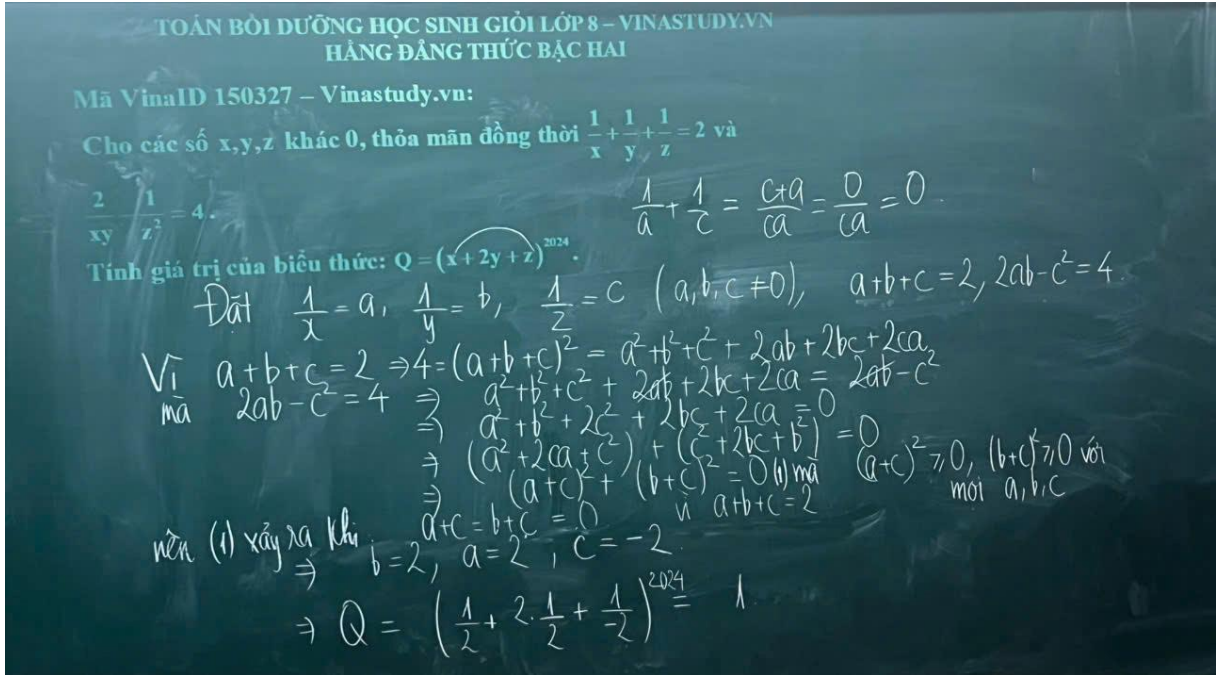 TOÁN BỒI DƯỠNG HỌC SINH GIỎI LỚP 8 – VINASTUDY.VN
HẰNG ĐẲNG THỨC BẬC HAI
Mã VinaID 150327 – Vinastudy.vn:
Cho các số x,y,z khác 0, thỏa mãn đồng thời 1/x + 1/y + 1/z = 2 và
2/xy - 1/z² = 4.
1/a + 1/c = c+a/ca = 0/ca = 0.
Tính giá trị của biểu thức: Q = (x + 2y + z)²⁰²⁴.
Đặt 1/x = a, 1/y = b, 1/z = c (a,b,c ≠ 0), a+b+c = 2, 2ab - c² = 4.
Vì a+b+c = 2 ⇒ 4 = (a+b+c)² = a²+b²+c² + 2ab + 2bc + 2ca
mà 2ab - c² = 4 ⇒ a²+b²+c² + 2ab + 2bc + 2ca = 2ab - c²
⇒ a² + b² + 2c² + 2bc + 2ca = 0
⇒ (a² + 2ca + c²) + (c² + 2bc + b²) = 0
⇒ (a+c)² + (b+c)² = 0 (1) mà (a+c)² ⩾ 0, (b+c)² ⩾ 0 với
mọi a,b,c
nên (1) xảy ra khi a+c = b+c = 0 vì a+b+c = 2
⇒ b = 2, a = 2, c = -2.
⇒ Q = (1/2 + 2.1/2 + 1/-2)²⁰²⁴ = 1.